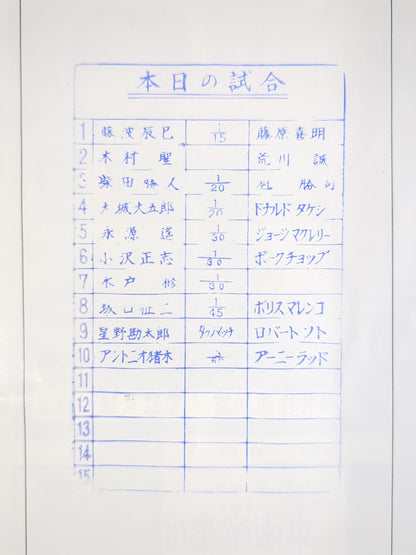 本日の試合
1 藤波辰巳 1/15 藤原喜明
2 木村聖 荒川誠
3 柴田勝人 1/20 佐勝司
4 大城大五郎 1/20 ドナルドタケシ
5 永源遥 1/30 ジョージマクレリー
6 小沢正志 1/30 ポークチョップ
7 木戸修 1/30
8 坂口征二 1/45 ボリスマレンコ
9 星野勘太郎 タッグマッチ ロバートソト
10 アントニオ猪木 アーニーラッド
11
12
13
14
15
東南産業は